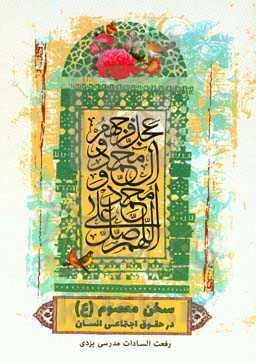 اللهم صل علی
محمد و
آل محمد و
عجل فرجهم
سخن معصوم (ع)
در حقوق اجتماعی انسان
رفعت السادات مدرسی یزدی